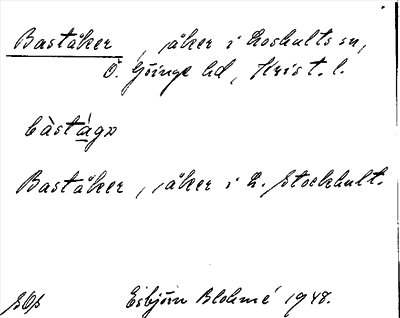 Baståker, åker i Loshults sn,
Ö. Göinge hd, Krist. l.
bàstágɒ
Baståker, åker i L. Stockhult.
Esbjörn Blohmé 1948.